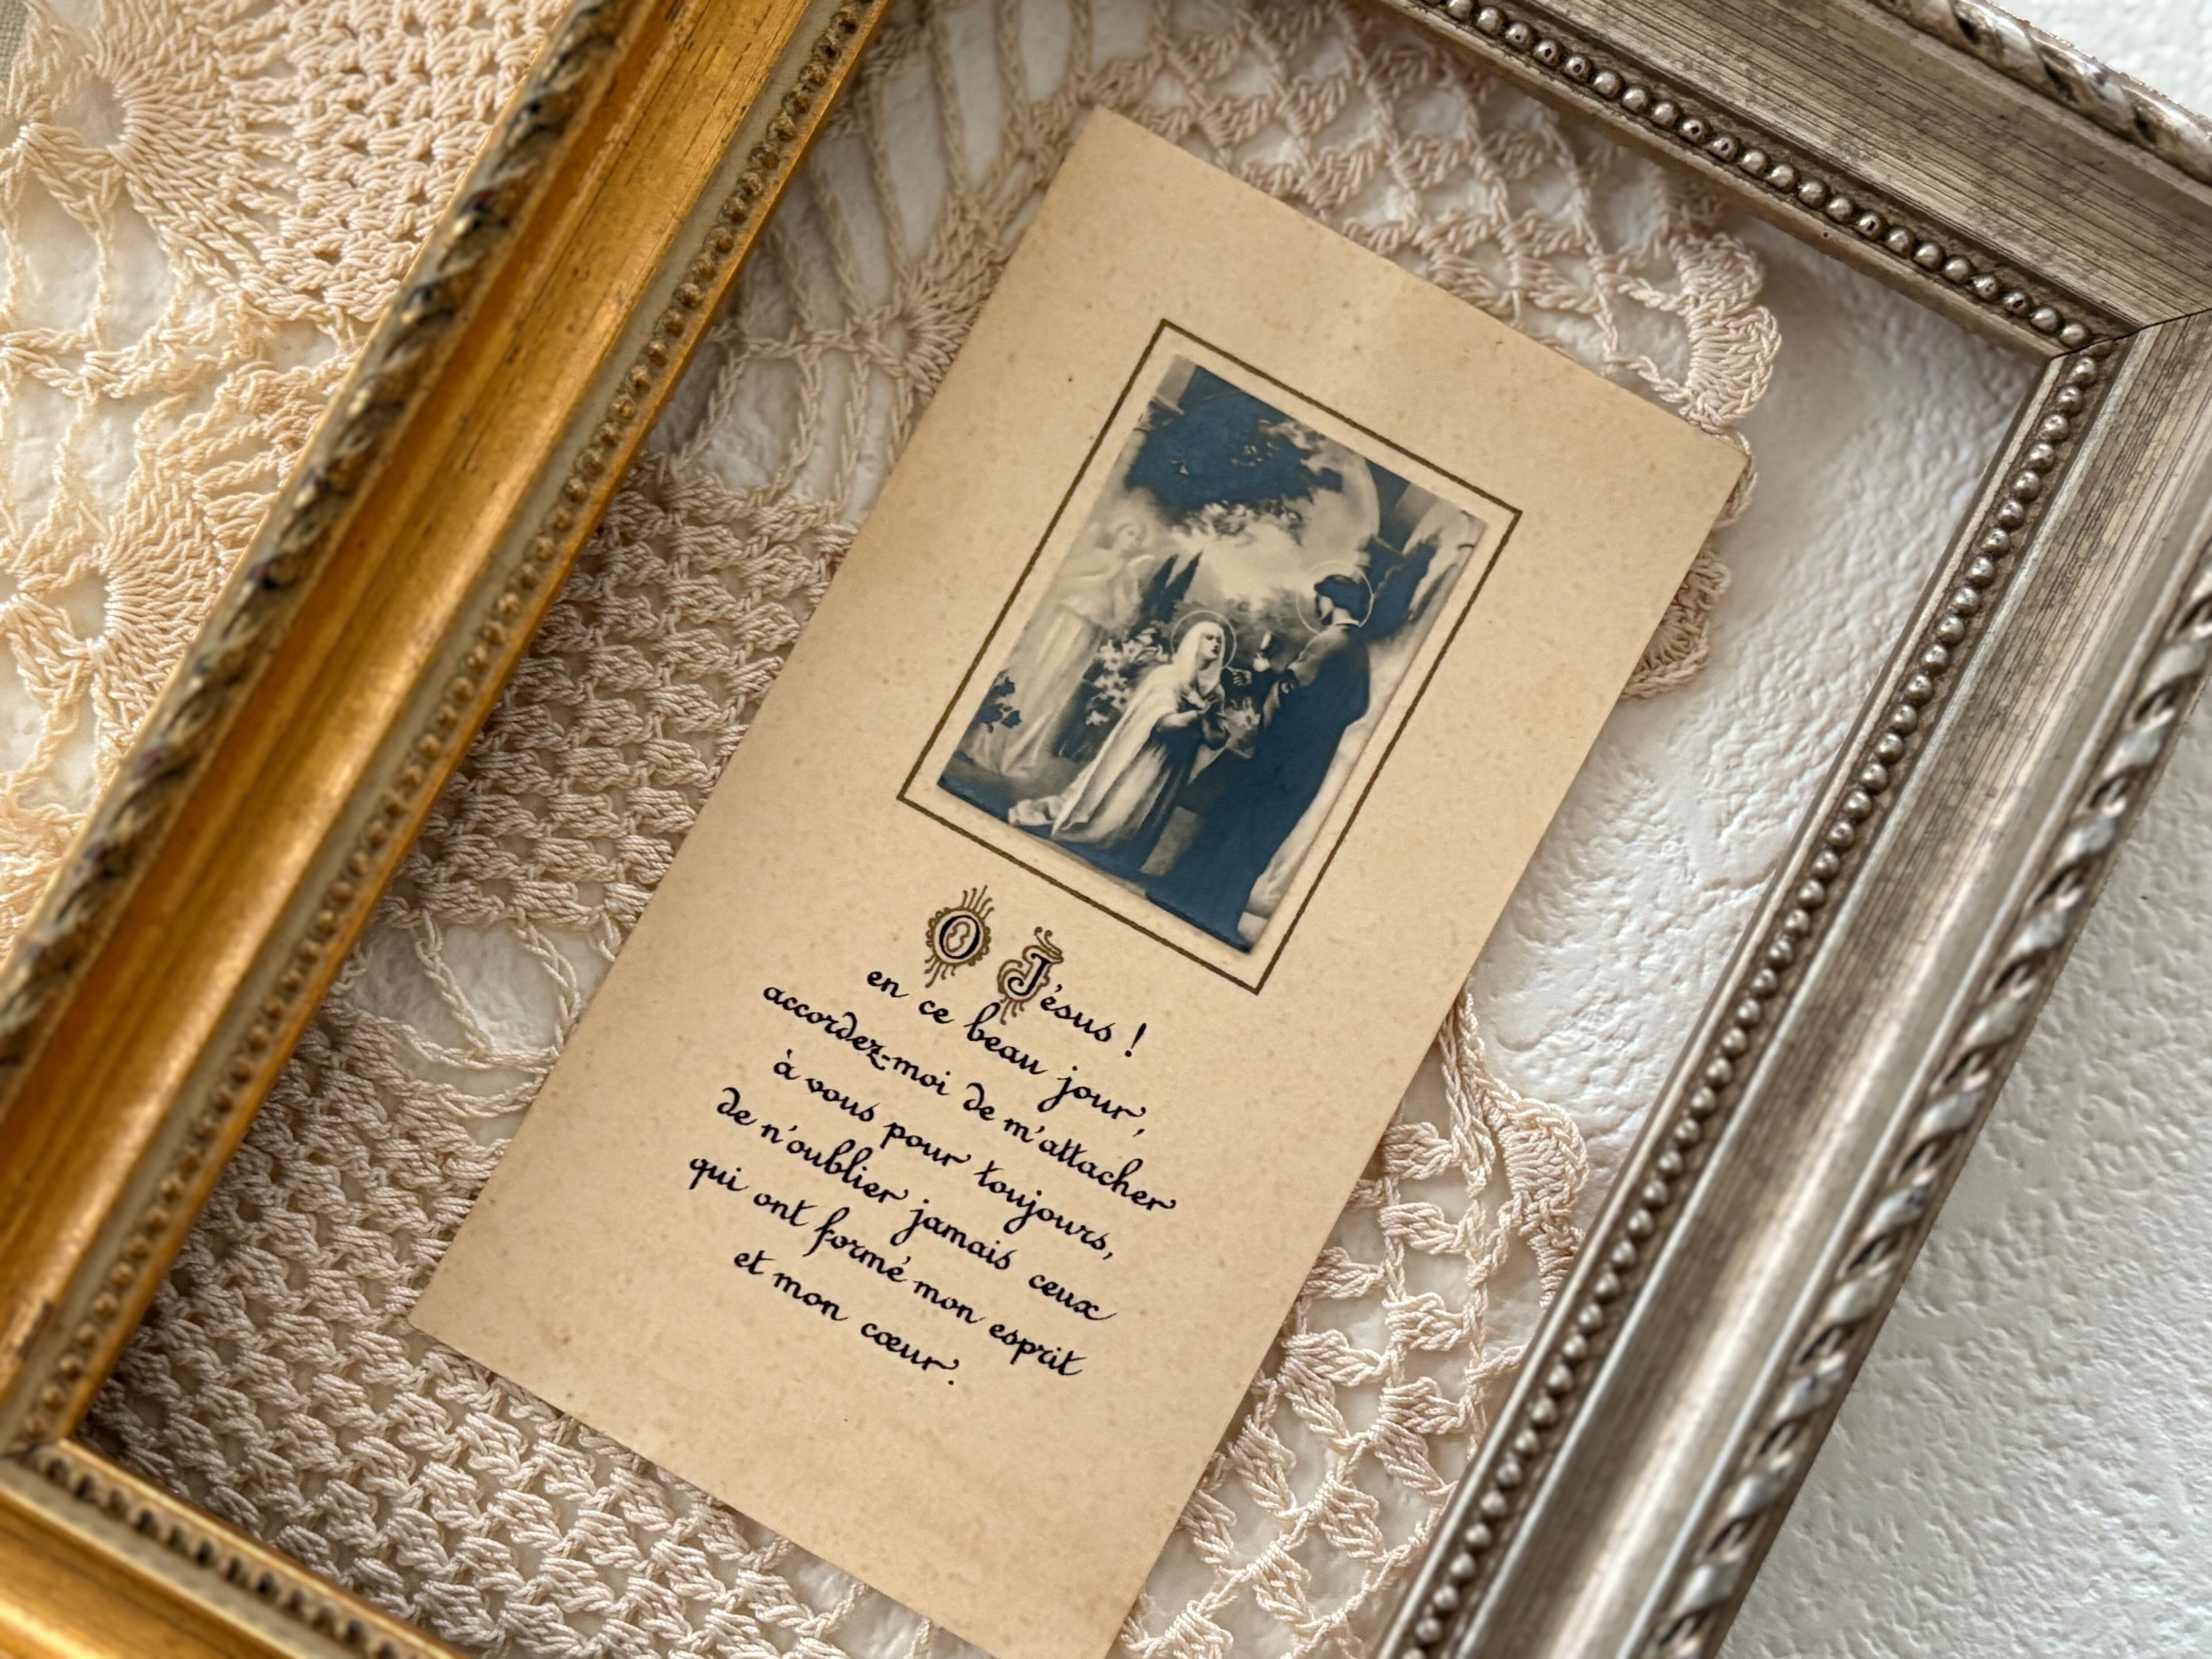 O Jésus !
en ce beau jour,
accordez-moi de m'attacher
à vous pour toujours,
de n'oublier jamais ceux
qui ont formé mon esprit
et mon cœur.